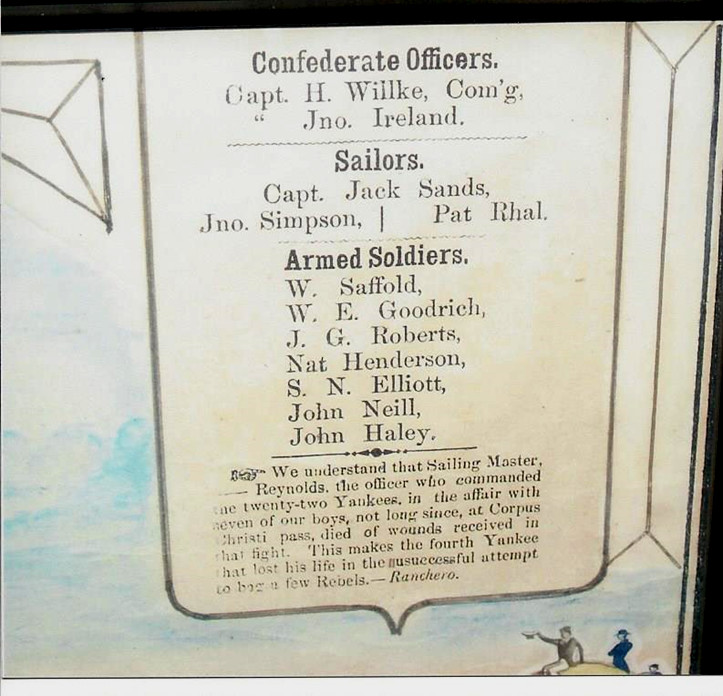 Confederate Officers.
Capt. H. Willke, Com'g,
“ Jno. Ireland.
Sailors.
Capt. Jack Sands,
Jno. Simpson, | Pat Rhal.
Armed Soldiers.
W. Saffold,
W. E. Goodrich,
J. G. Roberts,
Nat Henderson,
S. N. Elliott,
John Neill,
John Haley.
☞ We understand that Sailing Master,
—— Reynolds, the officer who commanded
the twenty-two Yankees, in the affair with
seven of our boys, not long since, at Corpus
Christi pass, died of wounds received in
that fight. This makes the fourth Yankee
that lost his life in the unsuccessful attempt
to bag a few Rebels.—Ranchero.